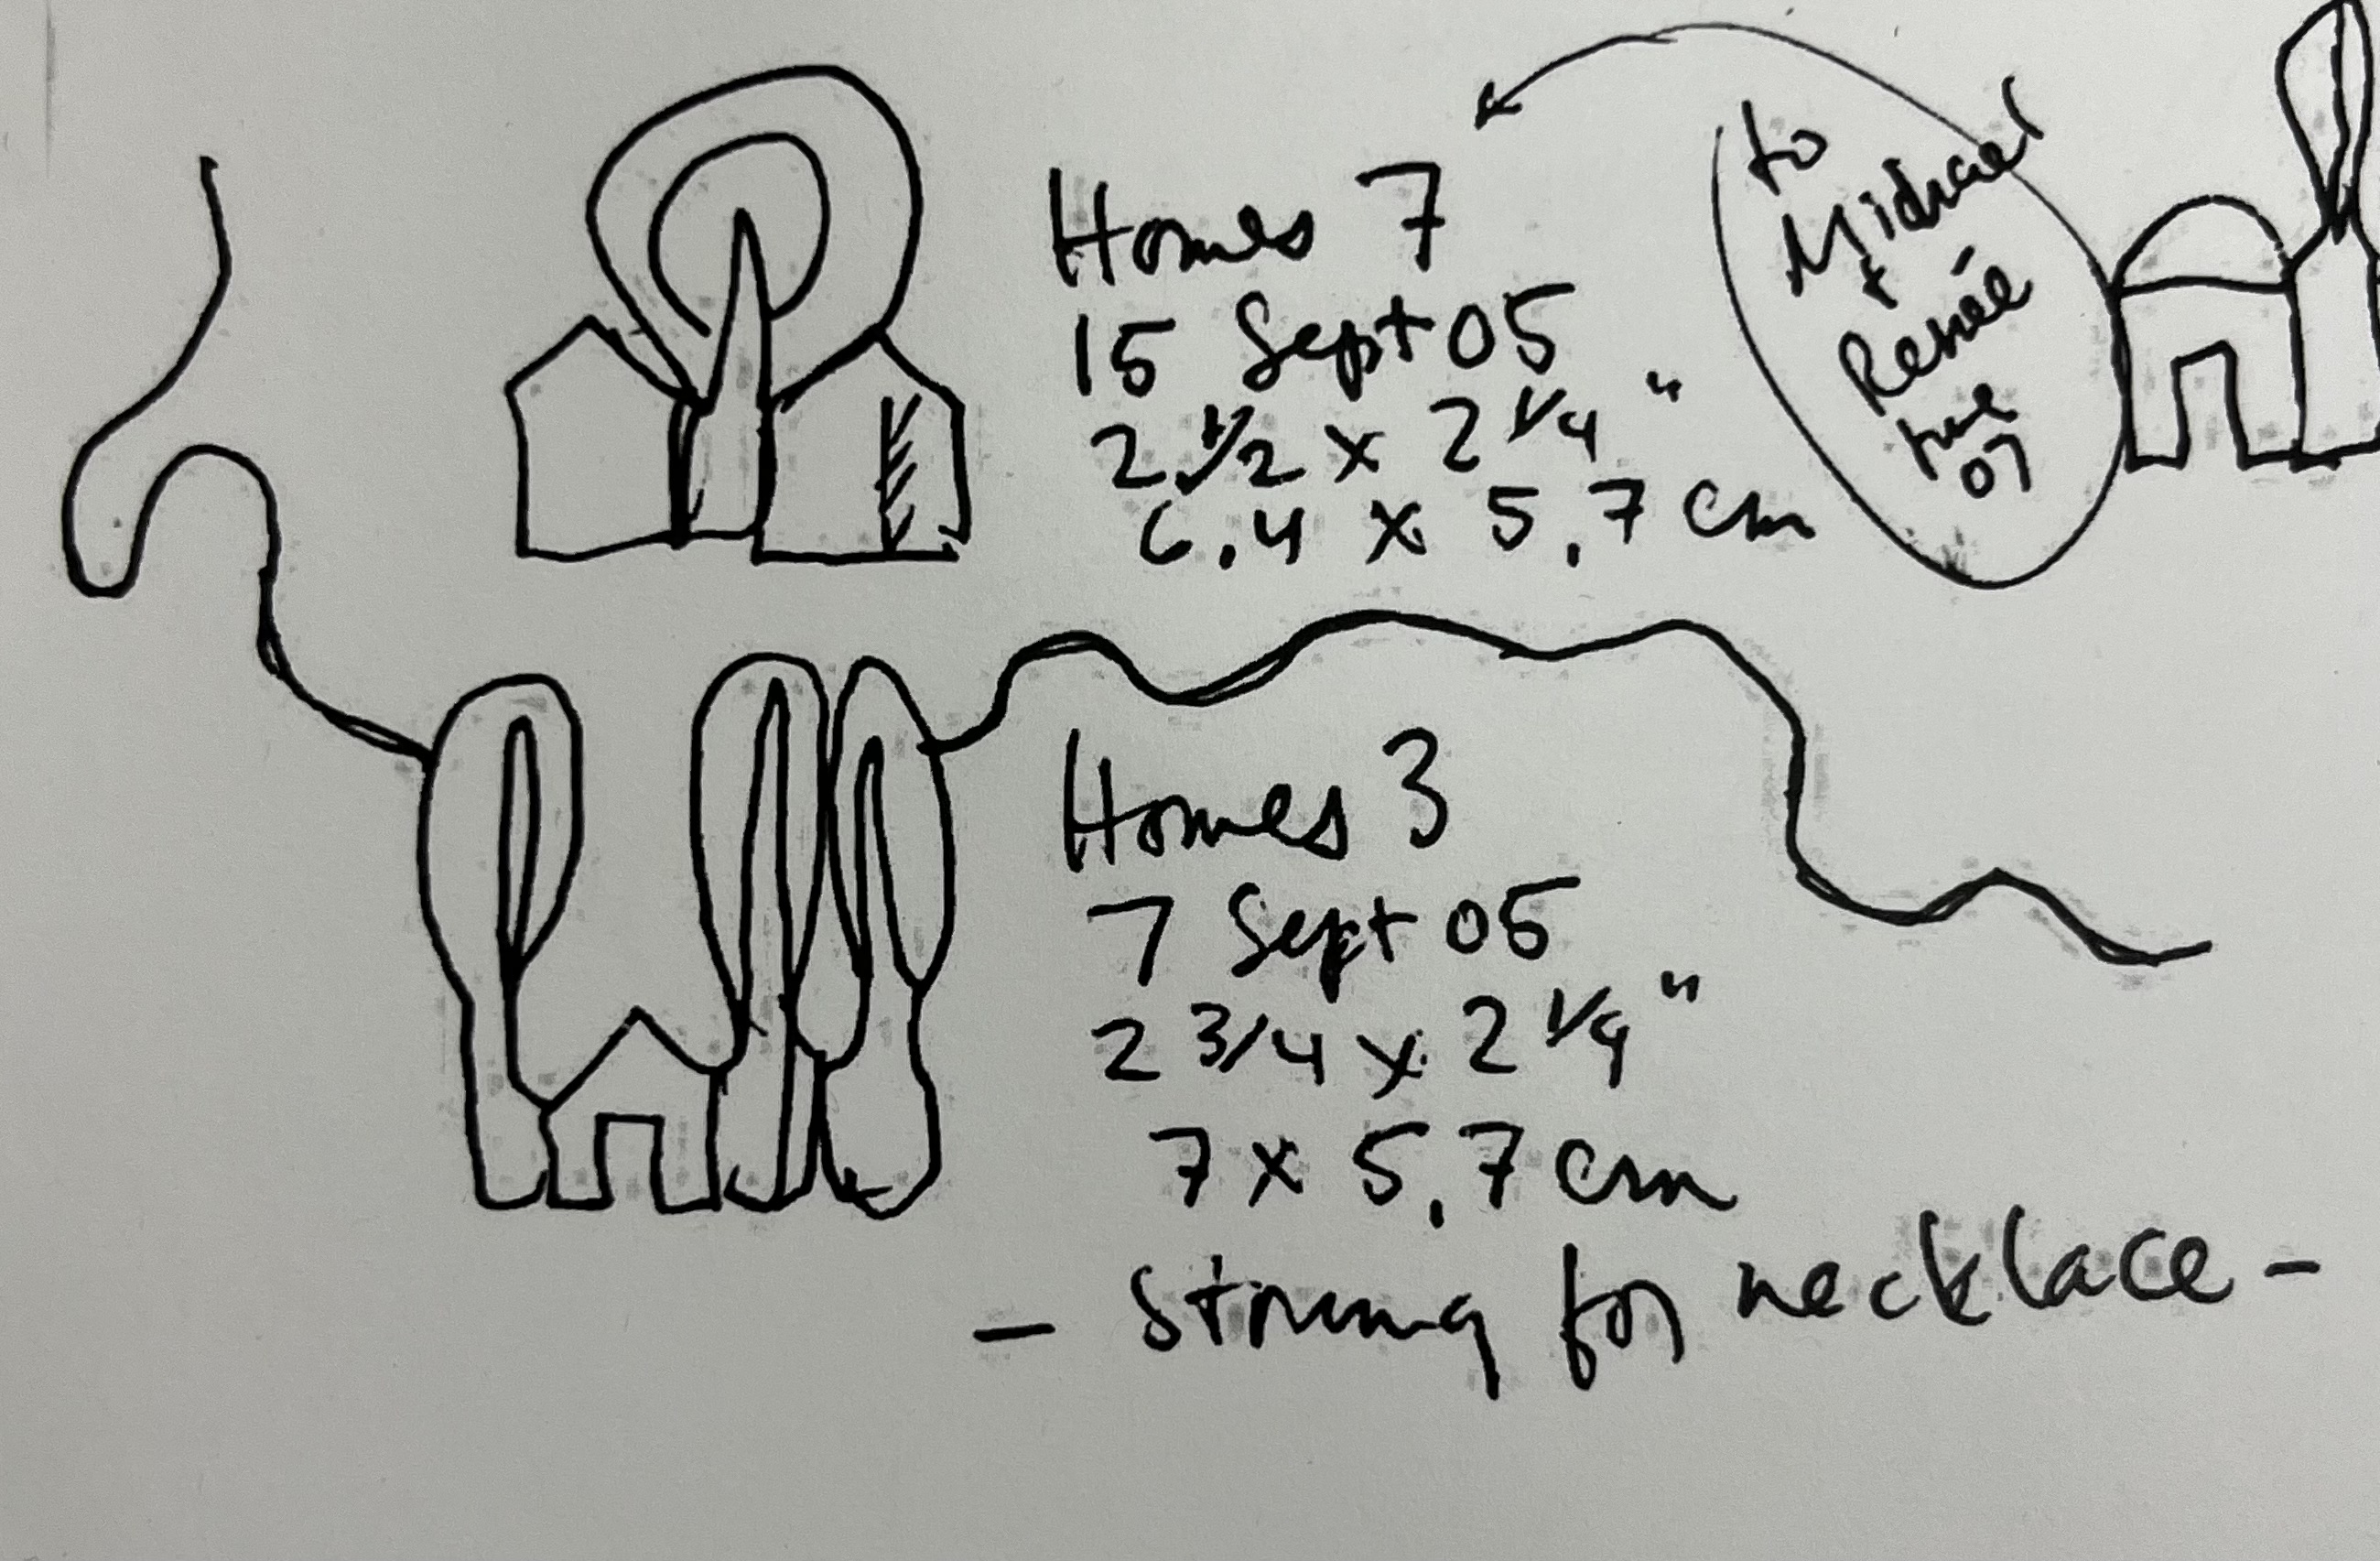 Homes 7
15 Sept 05
2 1/2 x 2 1/4 "
6.4 x 5.7 cm
to
Michael
+
Renée
07
Homes 3
7 Sept 05
2 3/4 x 2 1/4 "
7 x 5.7 cm
- strung for necklace -